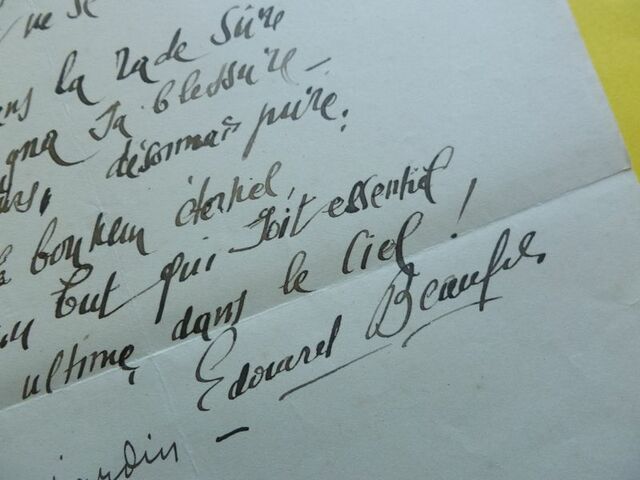 ne se
ns la rade sûre
gna sa blessure -
désormais pure.
bonheur éternel,
but qui soit essentiel
ultime, dans le Ciel !
Edouard Beaufils